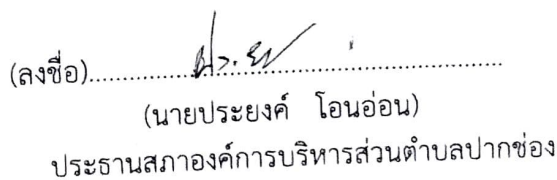 (ลงชื่อ)......................................................
(นายประยงค์ โอนอ่อน)
ประธานสภาองค์การบริหารส่วนตำบลปากช่อง